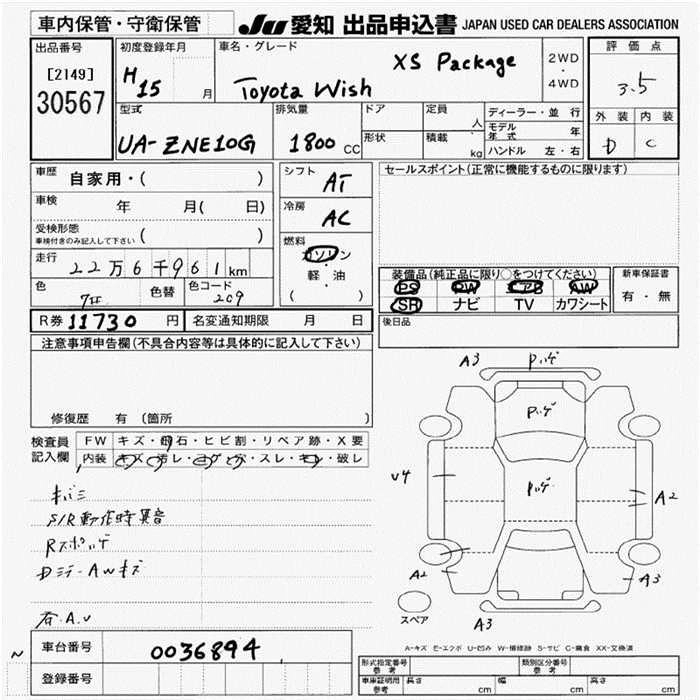 車内保管・守衛保管
JU 愛知 出品申込書 JAPAN USED CAR DEALERS ASSOCIATION
出品番号
[2149]
30567
初度登録年月
H 15 月
車名・グレード
Toyota Wish XS Package
2WD
・
4WD
評価点
3.5
外装 内装
D C
型式
UA-ZNE10G
排気量
1800 CC
ドア
形状
定員 人
積載 kg
ディーラー・並行
モデル年式 年
ハンドル 左・右
車歴 自家用・( )
車検 年 月( 日)
受検形態
車検付きのみ記入して下さい ( )
走行 22万6千961km
色 色替 色コード
209
シフト AT
冷房 AC
燃料
ガソリン
軽・油
( )
セールスポイント(正常に機能するものに限ります)
装備品(純正品に限り○をつけてください)
PS PW エアB AW
SR ナビ TV カワシート
新車保証書
有・無
後日品
R券 11730 円 名変通知期限 月 日
注意事項申告欄(不具合内容等は具体的に記入して下さい)
修復歴 有 (箇所 )
検査員記入欄
FW キズ・飛石・ヒビ割・リペア跡・X要
内装 キズ・汚レ・コゲ・穴・スレ・キレ・破レ
キバミ
S/R動作時異音
Rスポハゲ
Dミラー AWキズ
A.U
車台番号 0036894
登録番号
A3 Pハゲ
Pハゲ
Pハゲ
U4
A2
A2
A3
A3
スペア
A-キズ E-エクボ U-凹み W-補修跡 S-サビ C-腐食 XX-交換済
形式指定番号 参考
類別区分番号 参考
車庫証明用 参考 長さ cm 幅 cm 高さ cm